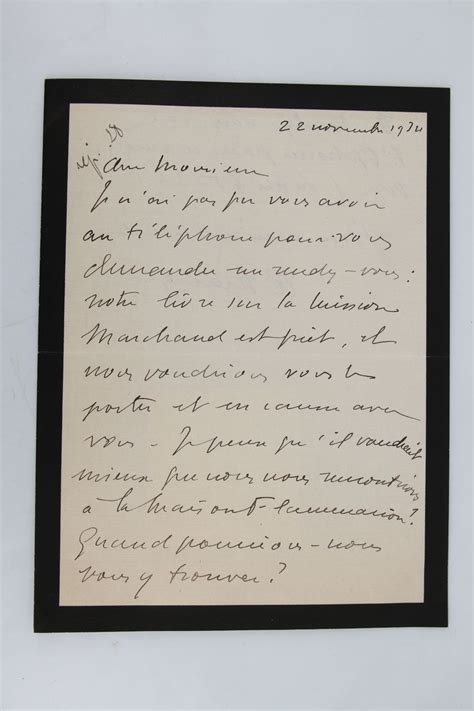 22 novembre 1934
rép. 28
Cher Monsieur
Je n'ai pas pu vous avoir
au téléphone pour vous
demander un rendez-vous :
notre livre sur la Mission
Marchand est prêt, et
nous voudrions vous le
porter et en causer avec
vous - Je pense qu'il vaudrait
mieux que nous nous rencontrions
à la Maison Flammarion ?
Quand pourrions-nous
vous y trouver ?